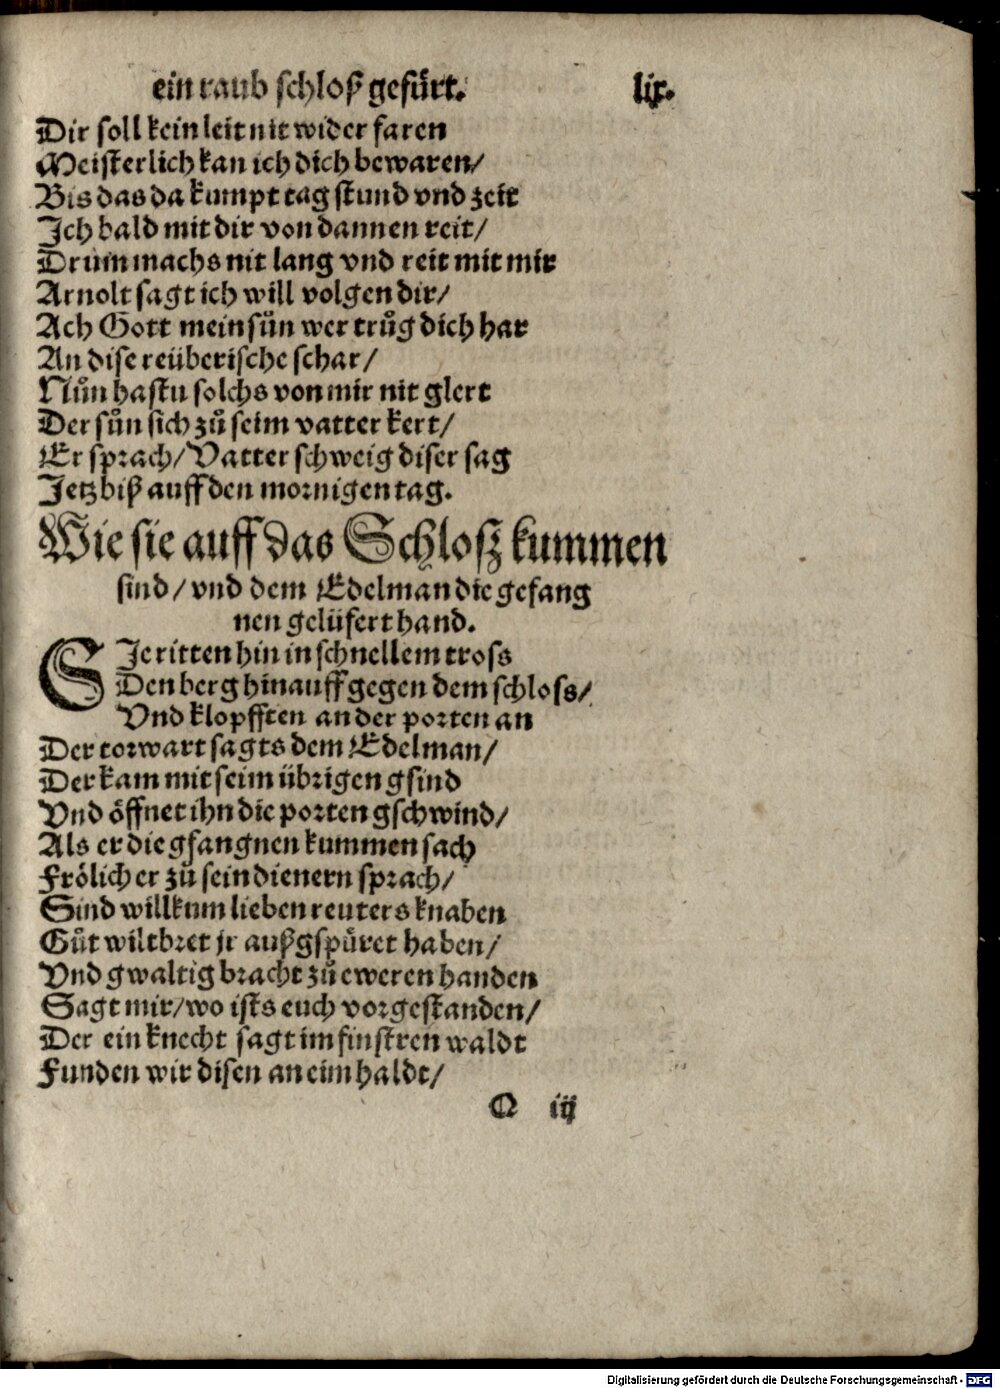 ein raub schloß gefuͤrt. lix.
Dir soll kein leit nit wider faren
Meisterlich kan ich dich bewaren/
Bis das da kumpt tag stund vnd zeit
Ich bald mit dir von dannen reit/
Drum machs nit lang vnd reit mit mir
Arnolt sagt ich will volgen dir/
Ach Gott mein suͤn wer truͦg dich har
An dise reüberische schar/
Nuͦn hastu solchs von mir nit glert
Der suͦn sich zuͦ seim vatter kert/
Er sprach/ Vatter schweig diser sag
Jetz biß auff den mornigen tag.
Wie sie auff das Schloß kummen
sind/ vnd dem Edelman die gefang
nen gelüfert hand.
SIe ritten hin in schnellem tross
Den berg hinauff gegen dem schloss/
Vnd klopfften an der porten an
Der torwart sagts dem Edelman/
Der kam mit seim übrigen gsind
Vnd öffnet ihn die porten gschwind/
Als er die gfangnen kummen sach
Frölich er zuͦ sein dienern sprach/
Sind willkum lieben reuters knaben
Guͦt wiltbret jr außgspüret haben/
Vnd gwaltig bracht zuͦ eweren handen
Sagt mir/ wo ists euch vorgestanden/
Der ein knecht sagt im finstren waldt
Funden wir disen an eim haldt/
Q iij
Digitalisierung gefördert durch die Deutsche Forschungsgemeinschaft - DFG